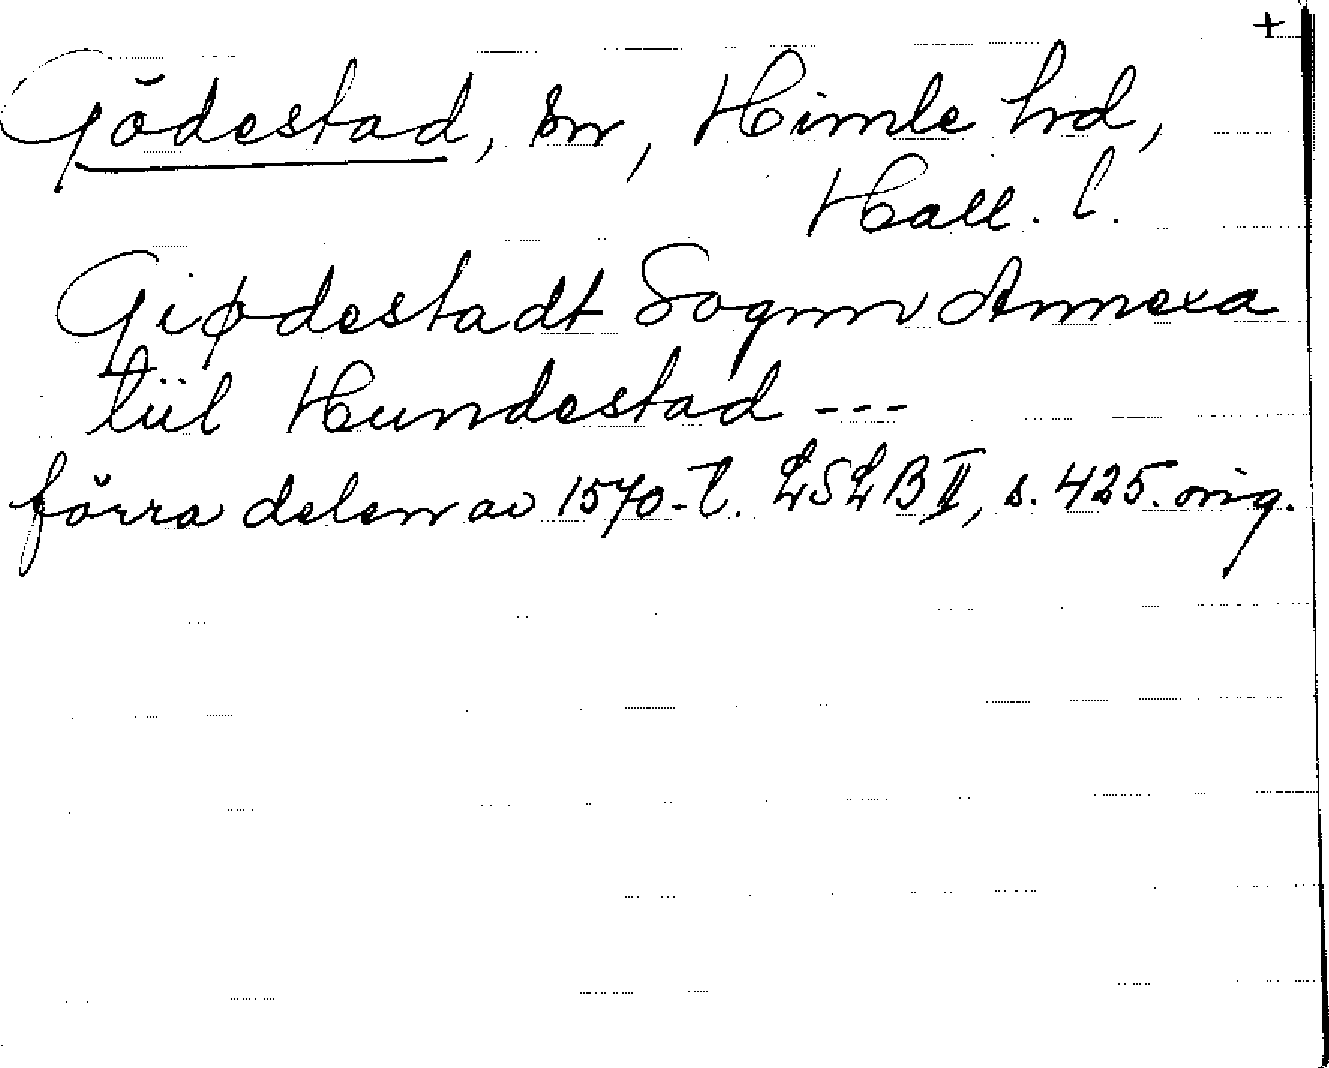 +
Gödestad, sn, Himle hd,
Hall. l.
Giødestadt Sognn Annexa
tiil Hundestad ---
förra delen av 1570-t. LSLB II, s. 425. orig.